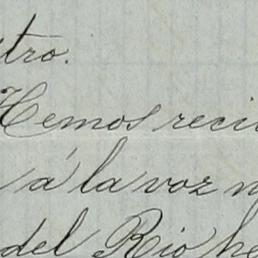 stro.
Hemos reci
a la voz n
del Rio he